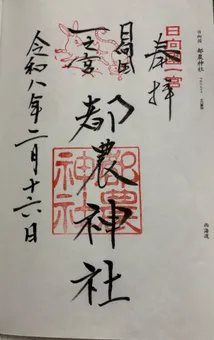 日向国 都農神社
日向一宮
奉拝
日向国
一之宮
都農神社
都農神社
令和八年二月十六日
西海道